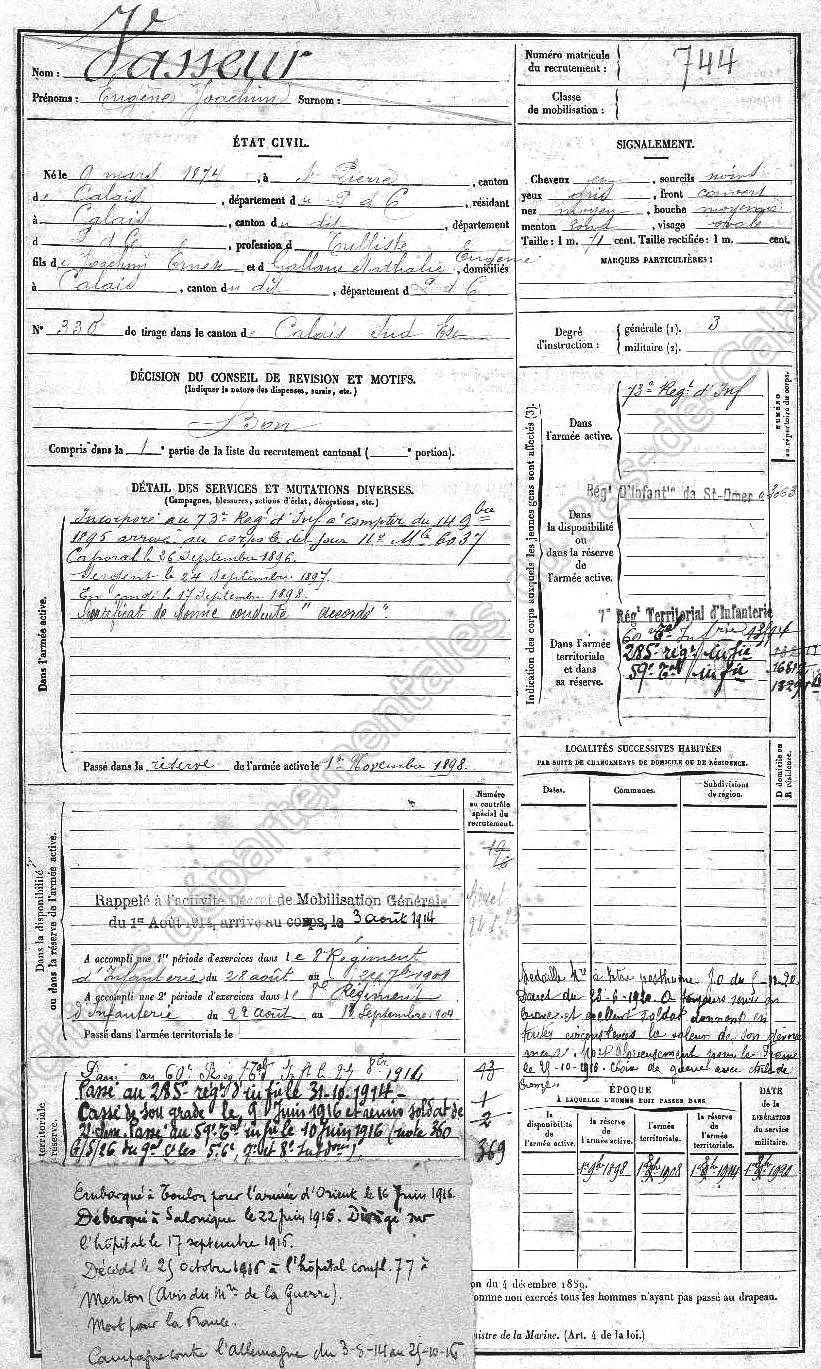 Nom : Vasseur
Prénoms : Eugène Joachim Surnom :
Numéro matricule du recrutement : 744
Classe de mobilisation :
ÉTAT CIVIL.
Né le mars 1874, à St Pierre, canton
de Calais, département du P d C, résidant
à Calais, canton du dit, département
d P d C, profession d Tulliste
fils de Joachim Ernest Eugène et d Nathalie, domiciliés
à Calais, canton du dit, département d P d C
N° 330 de tirage dans le canton de Calais Sud Est
SIGNALEMENT.
Cheveux, sourcils noirs
yeux gris, front couvert
nez moyen, bouche moyenne
menton rond, visage ovale
Taille : 1 m. 71 cent. Taille rectifiée : 1 m. cent.
MARQUES PARTICULIÈRES :
Degré d'instruction : générale (1). 3
militaire (2).
DÉCISION DU CONSEIL DE REVISION ET MOTIFS.
(Indiquer la nature des dispenses, sursis, etc.)
Bon
Compris dans la 1e partie de la liste du recrutement cantonal ( e portion).
DÉTAIL DES SERVICES ET MUTATIONS DIVERSES.
(Campagnes, blessures, actions d'éclat, décorations, etc.)
Dans l'armée active.
Incorporé au 73e Regt d'Inf à compter du 14 9bre
1895 arrivé au corps le dit jour No Mle 6037
Caporal le 26 Septembre 1896.
Sergent le 24 Septembre 1897.
En congé le 17 septembre 1898.
Certificat de bonne conduite "accordé".
Passé dans la réserve de l'armée active le 1er Novembre 1898.
Indication des corps auxquels les jeunes gens sont affectés (3).
NUMÉRO au répertoire du corps.
Dans l'armée active. 73e Regt d'Inf
Dans la disponibilité ou dans la réserve de l'armée active.
Régt D'Infantie de St-Omer 3063
Dans l'armée territoriale et dans sa réserve.
7e Régt Territorial d'Infanterie
60e Tal Infrie 13194
285e regt infie
59e Tal infie
LOCALITÉS SUCCESSIVES HABITÉES
PAR SUITE DE CHANGEMENTS DE DOMICILE OU DE RÉSIDENCE.
Dates. Communes. Subdivisions de région. D domicile ou R résidence.
Numéro au contrôle spécial du recrutement.
Dans la disponibilité ou dans la réserve de l'armée active.
Rappelé à l'activité Décret de Mobilisation Générale
du 1er Août 1914, arrive au corps, le 3 août 1914
A accompli une 1re période d'exercices dans le 8e Régiment
d'Infanterie du 28 août au 1901
A accompli une 2e période d'exercices dans le 8e Régiment
d'Infanterie du 22 août au 18 Septembre 1904
Passé dans l'armée territoriale le
Médaille Mre à titre posthume J.O du
Décret du 1920. A toujours servi en
brave et excellent soldat donnant en
toutes circonstances la valeur de son dévoue
ment. Mort glorieusement pour la France
le 25-10-1916. Croix de guerre avec étoile de
bronze
territoriale
réserve.
Passé au 60e Regt Tal Inf le 1914
Passé au 285e regt d'infie le 31.10.1914.
Cassé de son grade le 9 Juin 1916 et remis soldat de
2e classe. Passé au 59e Tal infie le 10 Juin 1916 (note 360
369
ÉPOQUE
À LAQUELLE L'HOMME DOIT PASSER DANS
DATE de la LIBÉRATION du service militaire.
la disponibilité de l'armée active. la réserve de l'armée active. l'armée territoriale. la réserve de l'armée territoriale.
1er 9bre 1898 1908 1914 1920
Embarqué à Toulon pour l'armée d'Orient le 16 Juin 1916
Débarqué à Salonique le 22 juin 1916. Dirigé sur
l'hôpital le 17 septembre 1916.
Décédé le 25 octobre 1916 à l'hôpital compl. 77 à
Menton (Avis du Mre de la Guerre).
Mort pour la France.
Campagne contre l'Allemagne du 3-8-14 au 25-10-16
on du 4 décembre 1889.
omme non exercés tous les hommes n'ayant pas passé au drapeau.
nistre de la Marine. (Art. 4 de la loi.)
Archives départementales du Pas-de-Calais